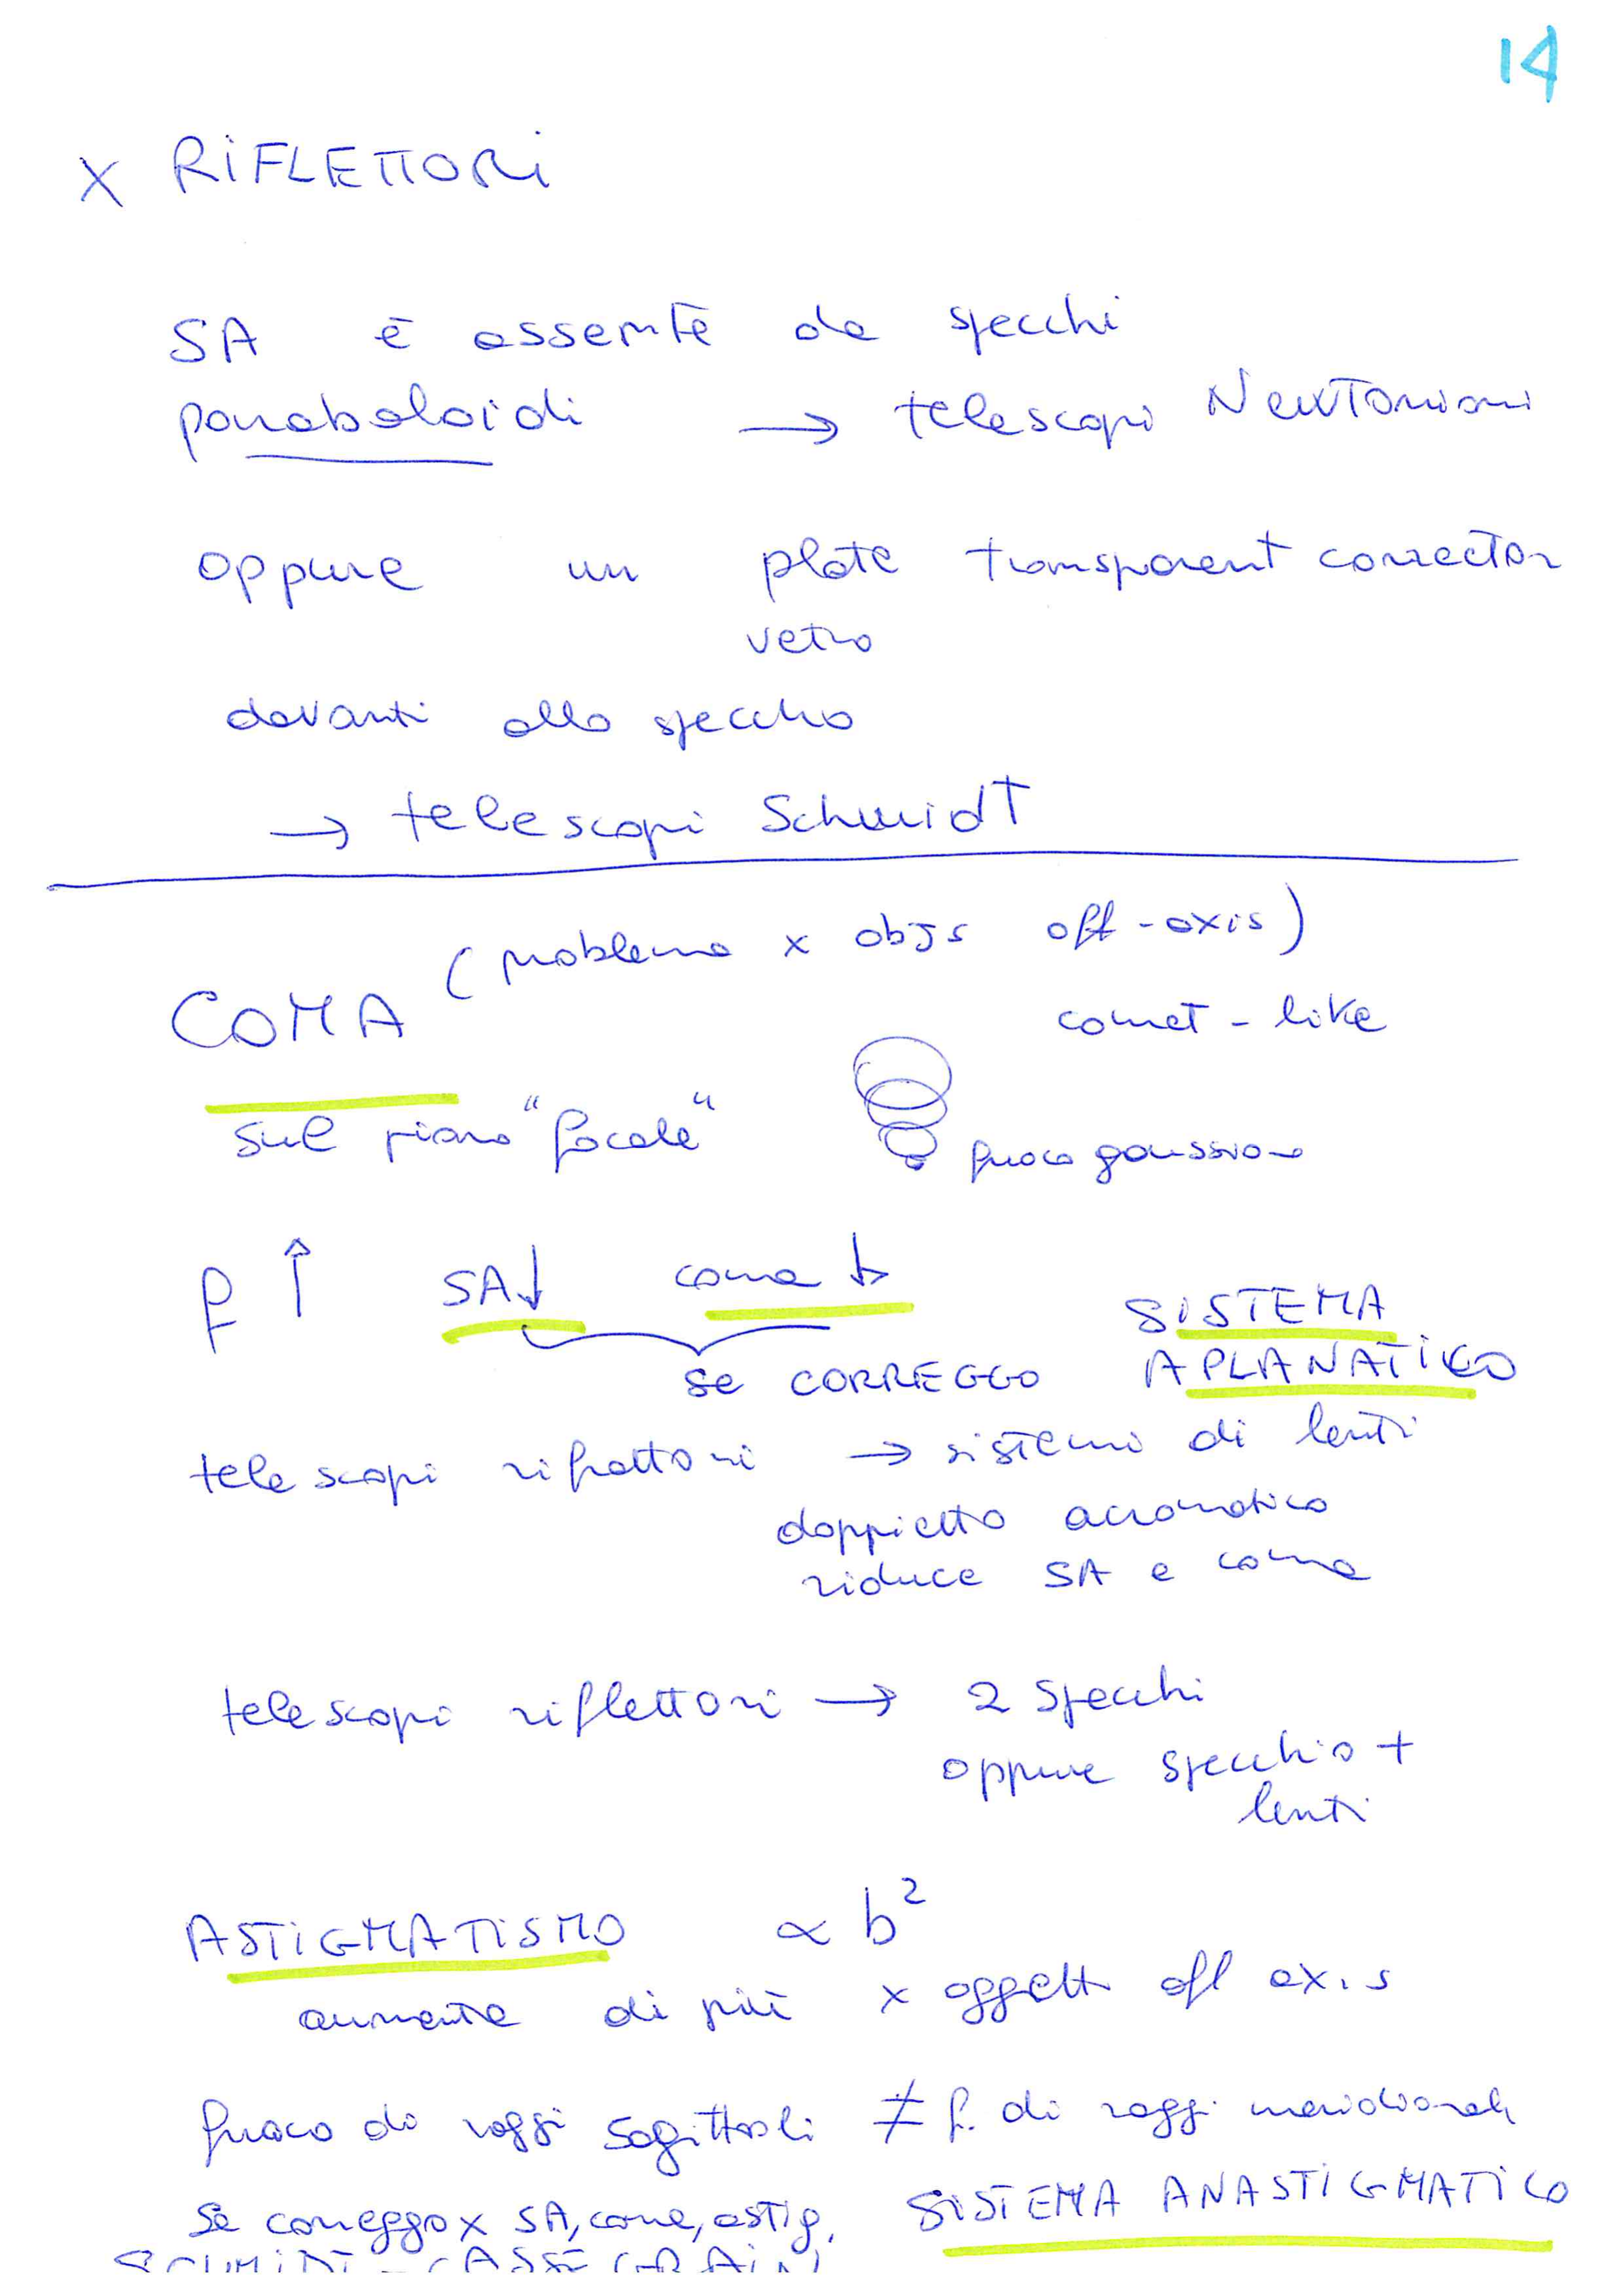 14
x RIFLETTORI
SA è assente da specchi
paraboloidi → telescopi Newtoniani
oppure un plate transparent corrector
vetro
davanti allo specchio
→ telescopi Schmidt
(problema x objs off-axis)
COMA
comet-like
sul piano "focale"
fuoco gaussiano
f ↑ SA↓ coma ↓
SISTEMA
se CORREGGO APLANATICO
telescopi rifrattori → sistemi di lenti
doppietto acromatico
riduce SA e coma
telescopi riflettori → 2 specchi
oppure specchio +
lenti
ASTIGMATISMO ∝ b²
aumenta di più x oggetti off axis
fuoco di raggi sagittali ≠ f. di raggi meridionali
se correggo x SA, coma, astig. SISTEMA ANASTIGMATICO
SCHMIDT-CASSEGRAIN